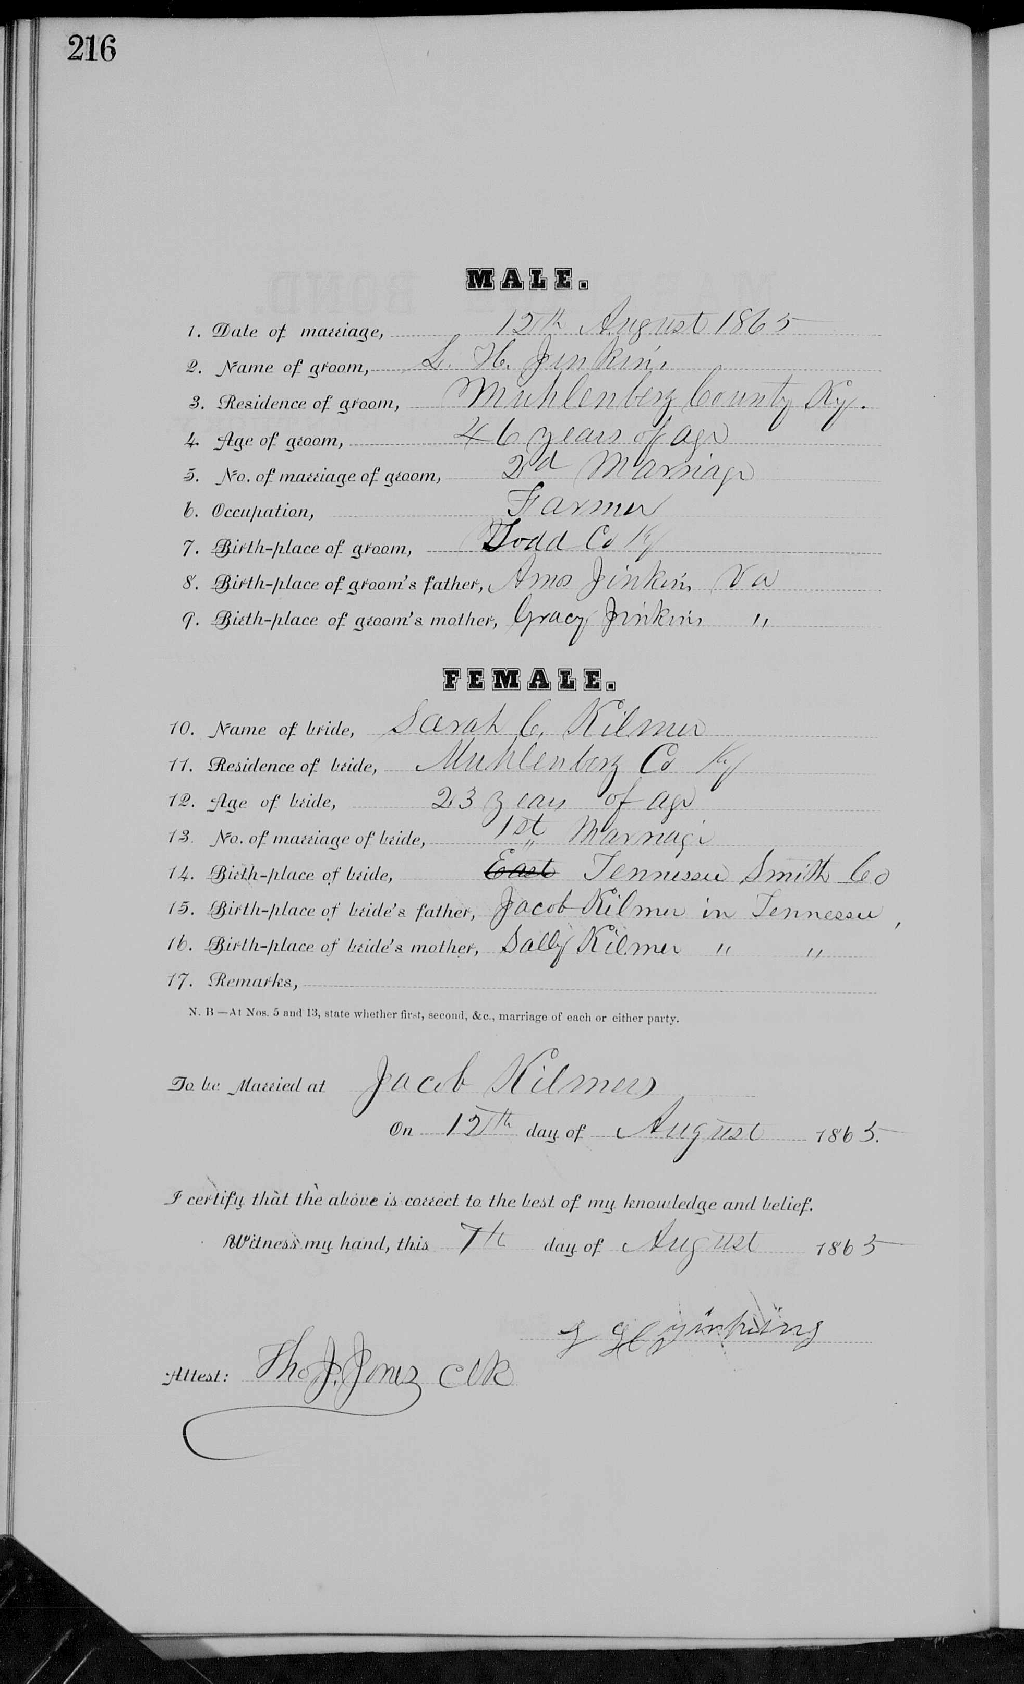 216
MALE.
1. Date of marriage, 15th August 1865
2. Name of groom, L. H. Jinkins
3. Residence of groom, Muhlenberg County Ky.
4. Age of groom, 46 years of age
5. No. of marriage of groom, 2d Marriage
6. Occupation, Farmer
7. Birth-place of groom, Todd Co Ky
8. Birth-place of groom's father, Amos Jinkins Va
9. Birth-place of groom's mother, Gracy Jinkins "
FEMALE.
10. Name of bride, Sarah C. Kilmer
11. Residence of bride, Muhlenberg Co Ky
12. Age of bride, 23 years of age
13. No. of marriage of bride, 1st Marriage
14. Birth-place of bride, East Tennessee Smith Co
15. Birth-place of bride's father, Jacob Kilmer in Tennessee,
16. Birth-place of bride's mother, Sally Kilmer " "
17. Remarks,
N. B—At Nos. 5 and 13, state whether first, second, &c., marriage of each or either party.
To be Married at Jacob Kilmers
On 15th day of August 1865.
I certify that the above is correct to the best of my knowledge and belief.
Witness my hand, this 7th day of August 1865
L H Jinkins
Attest: Tho J. Jones Clk